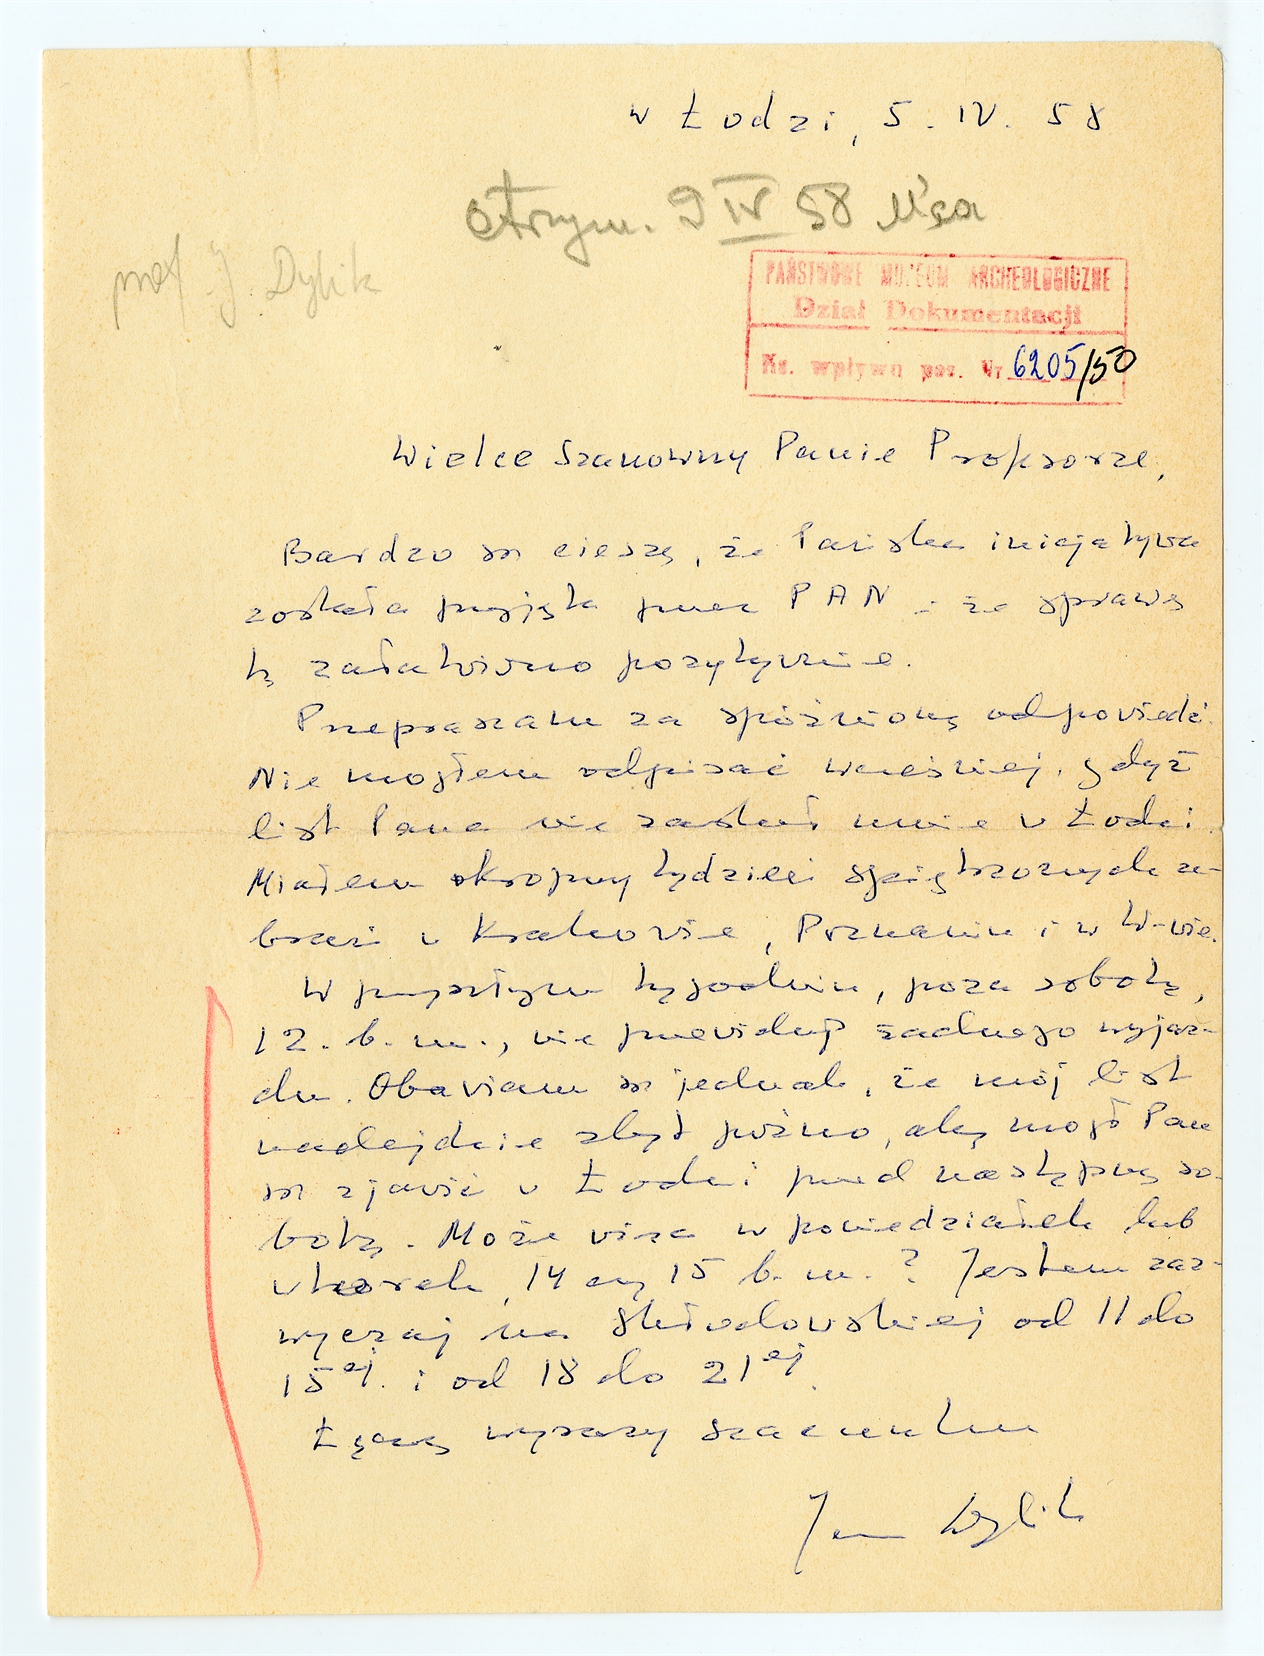 w Łodzi, 5. IV. 58
otrzym. 9 IV 58
prof. J. Dylik
PAŃSTWOWE MUZEUM ARCHEOLOGICZNE
Dział Dokumentacji
Ks. wpływu poz. Nr 6205/50
Wielce Szanowny Panie Profesorze,
Bardzo się cieszę, że Pańska inicjatywa
została przyjęta przez PAN i że sprawę
tę załatwiono pozytywnie.
Przepraszam za spóźnioną odpowiedź.
Nie mogłem odpisać wcześniej, gdyż
list Pana nie zastał mnie w Łodzi.
Miałem okropny tydzień spiętrzonych ze-
brań w Krakowie, Poznaniu i w W-wie.
W przyszłym tygodniu, poza sobotą,
12. b. m., nie przewiduję żadnego wyjaz-
du. Obawiam się jednak, że mój list
nadejdzie zbyt późno, aby mógł Pan
się zjawić w Łodzi przed następną so-
botą. Może więc w poniedziałek lub
wtorek, 14 czy 15 b. m.? Jestem zaz-
wyczaj na Skłodowskiej od 11 do
15ej. i od 18 do 21ej.
Łączę wyrazy szacunku
Jan Dylik